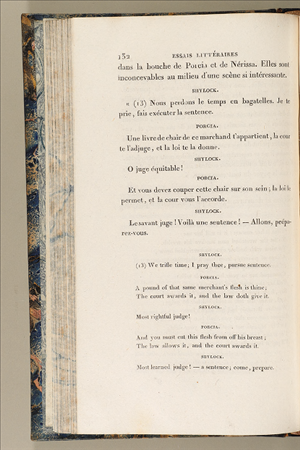 152 ESSAIS LITTÉRAIRES
dans la bouche de Porcia et de Nérissa. Elles sont
inconcevables au milieu d'une scène si intéressante.
SHYLOCK.
« (13) Nous perdons le temps en bagatelles. Je te
prie, fais exécuter la sentence.
PORCIA.
Une livre de chair de ce marchand t'appartient, la cour
te l'adjuge, et la loi te la donne.
SHYLOCK.
O juge équitable!
PORCIA.
Et vous devez couper cette chair sur son sein; la loi le
permet, et la cour vous l'accorde.
SHYLOCK.
Le savant juge! Voilà une sentence! — Allons, prépa-
rez-vous.
SHYLOCK.
(13) We trifle time; I pray thee, pursue sentence.
PORCIA.
A pound of that same merchant's flesh is thine;
The court awards it, and the law doth give it.
SHYLOCK.
Most rightful judge!
PORCIA.
And you must cut this flesh from off his breast;
The law allows it, and the court awards it.
SHYLOCK.
Most learned judge! — a sentence; come, prepare.